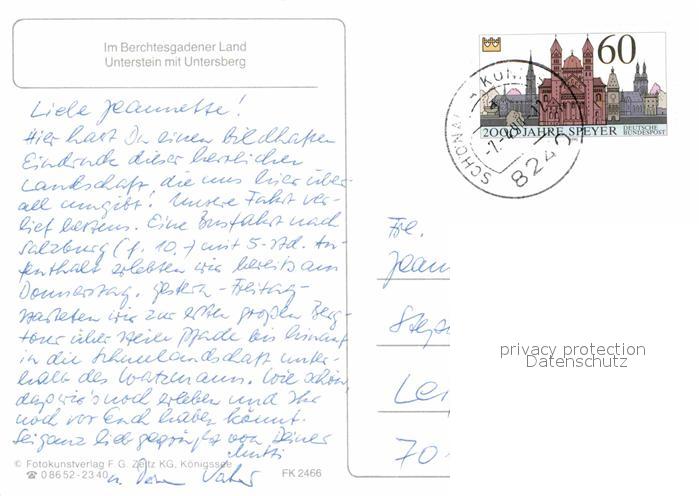 Im Berchtesgadener Land
Unterstein mit Untersberg
Liebe Jeannette!
Hier hast Du einen bildhaften
Eindruck dieser herrlichen
Landschaft, die uns hier über-
all umgibt! Unsere Fahrt ver-
lief bestens. Eine Busfahrt nach
Salzburg (f. 10,-) mit 5-std. Au-
fenthalt erlebten wir bereits am
Donnerstag. Gestern - Freitag -
starteten wir zur ersten großen Berg-
tour über steile Pfade bis hinauf
in die Schneelandschaft unter-
halb des Watzmanns. Wie schön,
daß wir's noch erleben und Ihr
noch vor Euch haben könnt.
Sei ganz lieb gegrüßt von Deiner
Mutti
u. Dem Vater
© Fotokunstverlag F. G. Zeitz KG, Königssee
☎ 0 86 52 - 23 40
FK 2466
60
2000 JAHRE SPEYER DEUTSCHE BUNDESPOST
SCHÖNAU A. KÖNIGSSEE
8240
Frl.
Jean
Step
Le
70
privacy protection
Datenschutz